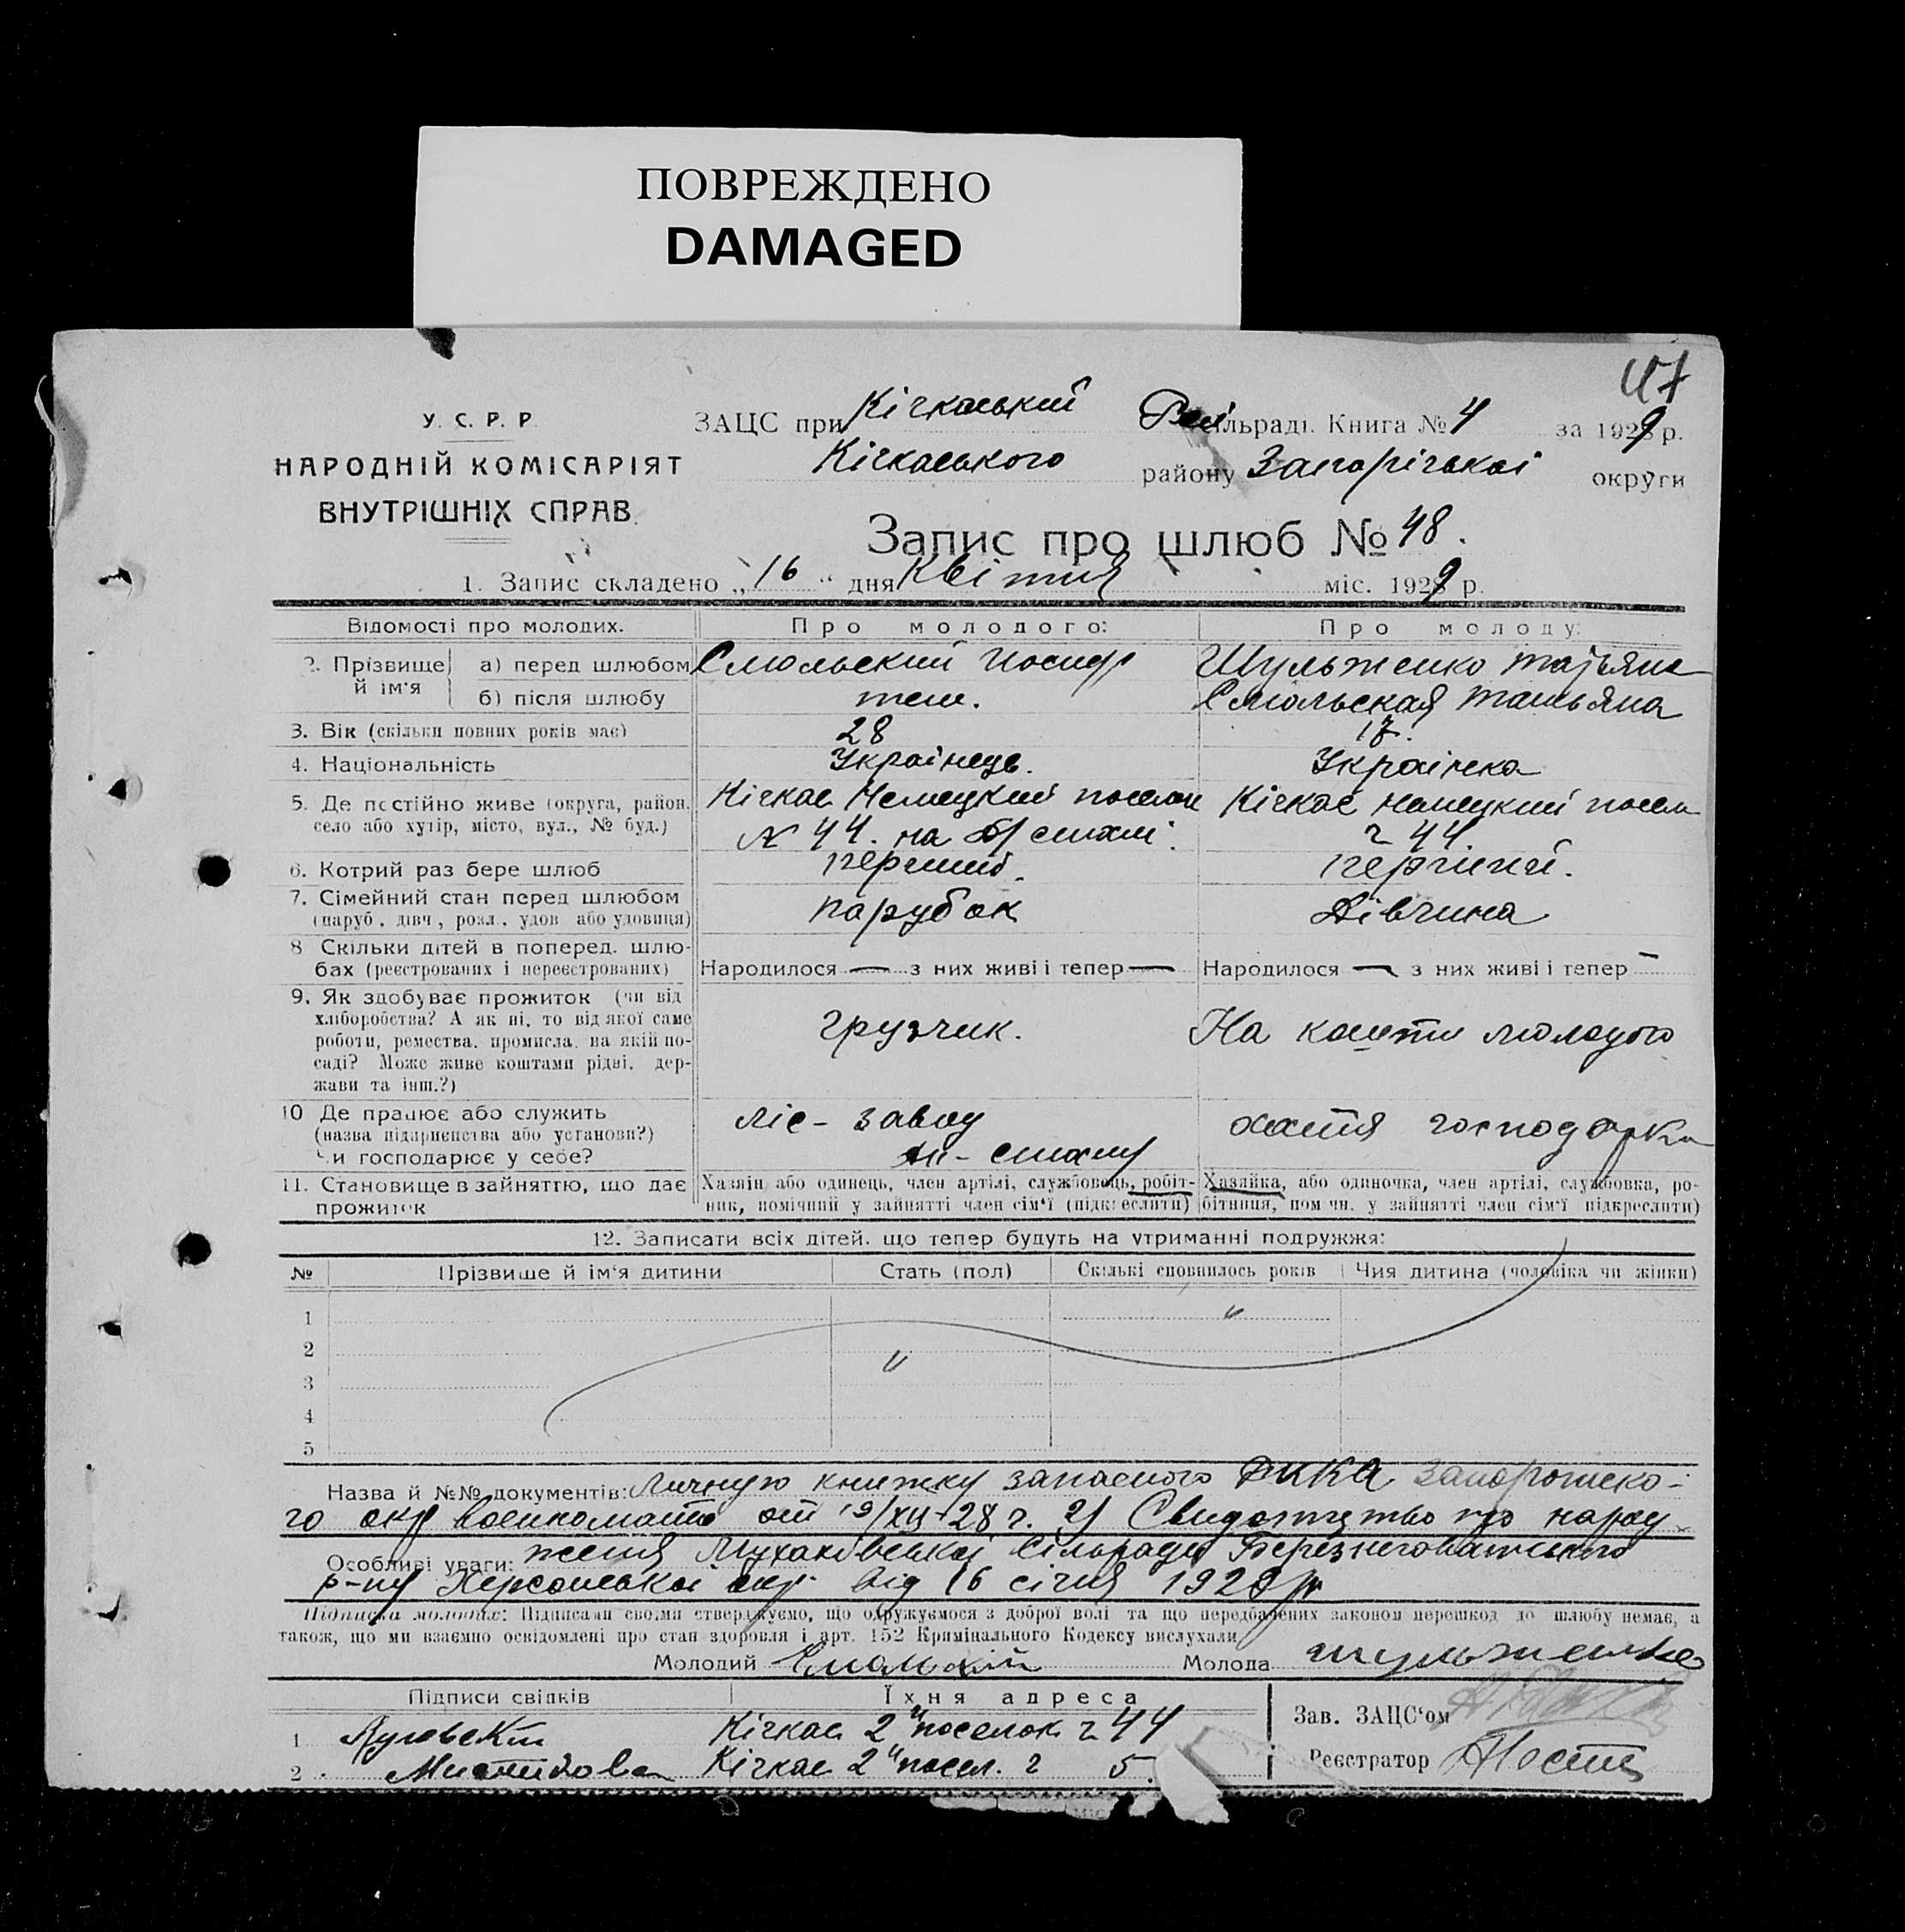 ПОВРЕЖДЕНО
DAMAGED
47
У. С. Р. Р.
НАРОДНІЙ КОМІСАРІЯТ
ВНУТРІШНІХ СПРАВ.
ЗАЦС при Кічкаський Рай сільраді. Книга № 4 за 1929 р.
Кічкаського району Запорізької округи
Запис про шлюб № 48.
1. Запис складено „16" дня Квітня міс. 1929 р.
Відомості про молодих. Про молодого: Про молоду:
2. Прізвище й ім'я а) перед шлюбом Смольский Иосиф Шульженко Татьяна
б) після шлюбу теж. Смольская Татьяна
3. Вік (скільки повних років має) 28 17.
4. Національність Українець. Українка
5. Де постійно живе (округа, район, село або хутір, місто, вул., № буд.) Кічкас Немецкий поселок Кічкас немецкий посел
№ 44. на 44
6. Котрий раз бере шлюб перший. перший.
7. Сімейний стан перед шлюбом (паруб., дівч., розл., удов. або удовиця) парубок Дівчина
8 Скільки дітей в поперед. шлюбах (реєстрованих і нереєстрованих) Народилося — з них живі і тепер — Народилося — з них живі і тепер —
9. Як здобуває прожиток (чи від хліборобства? А як ні, то від якої саме роботи, ремества, промисла, на якій посаді? Може живе коштами рідні, держави та інш.?) грузчик. На кошти молодого
10 Де працює або служить (назва підприємства або установи?) Чи господарює у себе? ліс-завод хатня господарка
11. Становище в зайняттю, що дає прожиток Хазяїн або одинець, член артілі, службовець, робітник, помічний у зайнятті член сім'ї (підкреслити) Хазяйка, або одиночка, член артілі, службовка, робітниця, помічн. у зайнятті член сім'ї підкреслити)
12. Записати всіх дітей, що тепер будуть на утриманні подружжя:
№ Прізвище й ім'я дитини Стать (пол) Скількі сповнилось років Чия дитина (чоловіка чи жінки)
1 "
2 "
3
4
5
Назва й №№ документів: Личную книжку запасного РККА Запорожско-
го окр военкомата от 19/XII-28 г. 2) Свидоцтво про народ
Особливі уваги: женя сільради Березнеговатського
р-ну Херсонської окр. від 16 січня 1929 р
Підписка молодих: Підписами своїми стверджуємо, що одружуємося з доброї волі та що передбачених законом перешкод до шлюбу немає, а
також, що ми взаємно освідомлені про стан здоров'я і арт. 152 Кримінального Кодексу вислухали
Молодий Смольский Молода Шульженко
Підписи свідків Їхня адреса Зав. ЗАЦС'ом
1 Кічкас 2й поселок 44
2 Кічкас 2й посел. 5. Реєстратор